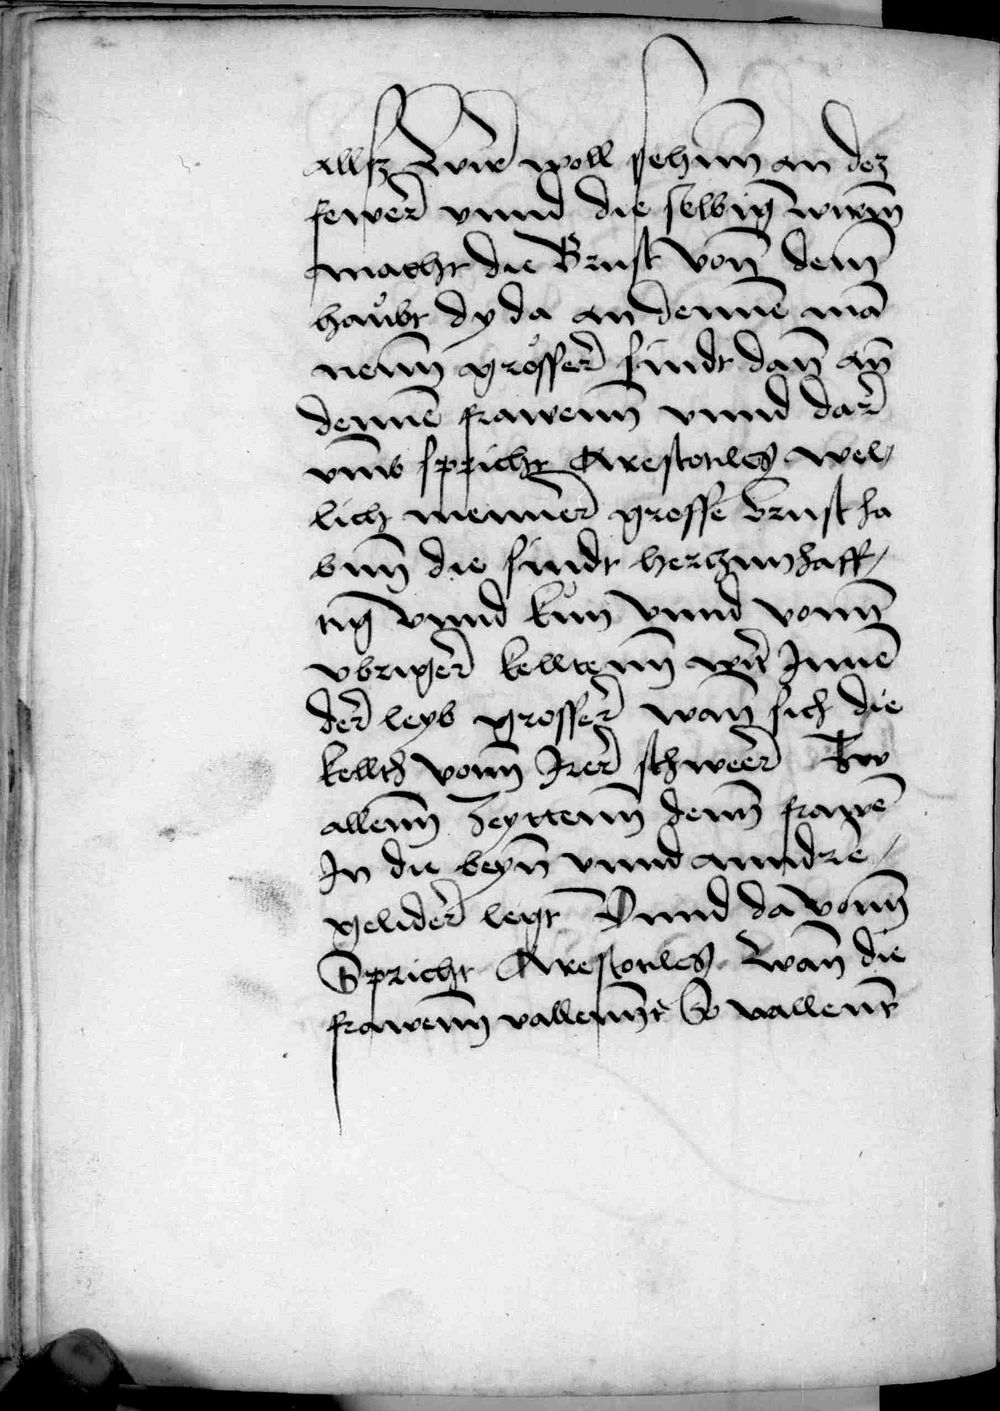 allsz wir woll sehenn an dez
fewer vnnd die selbig wirm
macht die Brust vonn dem
haubt dy da an dennen man
nenn grösser sindt dann an
dennen frawenn vnnd dar
vmb spricht Arestotiles wel,
lich menner grosse brust ha
benn die sindt herczennhaff,
tig vnnd kün vnnd vonn
vbriger kelltenn wirt Innen
der leyb grosser wann sich die
kellth vonn Irer schweer zw
allenn zeyttenn denn frawen
In die beyn vnnd anndre,
gelider legt Vnnd da vonn
Spricht Arestotiles wann die
frawenn vallennt So vallent